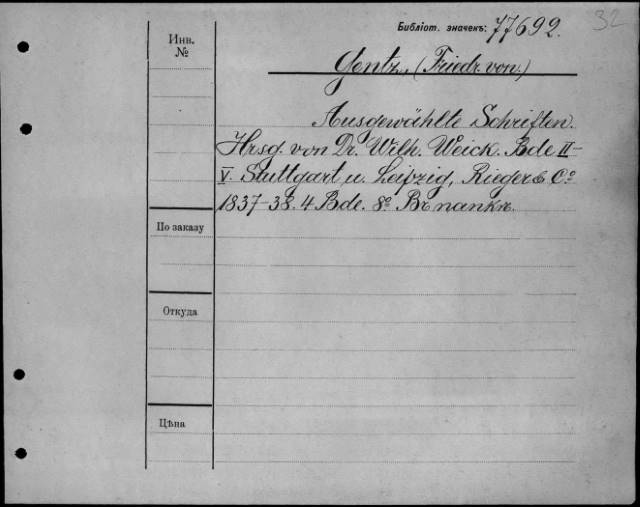 32
Библіот. значекъ: 77692.
Инв.
№
Gentz, (Friedr. von.)
Ausgewählte Schriften.
Hrsg. von Dr. Wilh. Weick. Bde II–
V. Stuttgart u. Leipzig, Rieger & Cº
1837–38. 4 Bde. 8º Въ папкѣ.
По заказу
Откуда
Цѣна